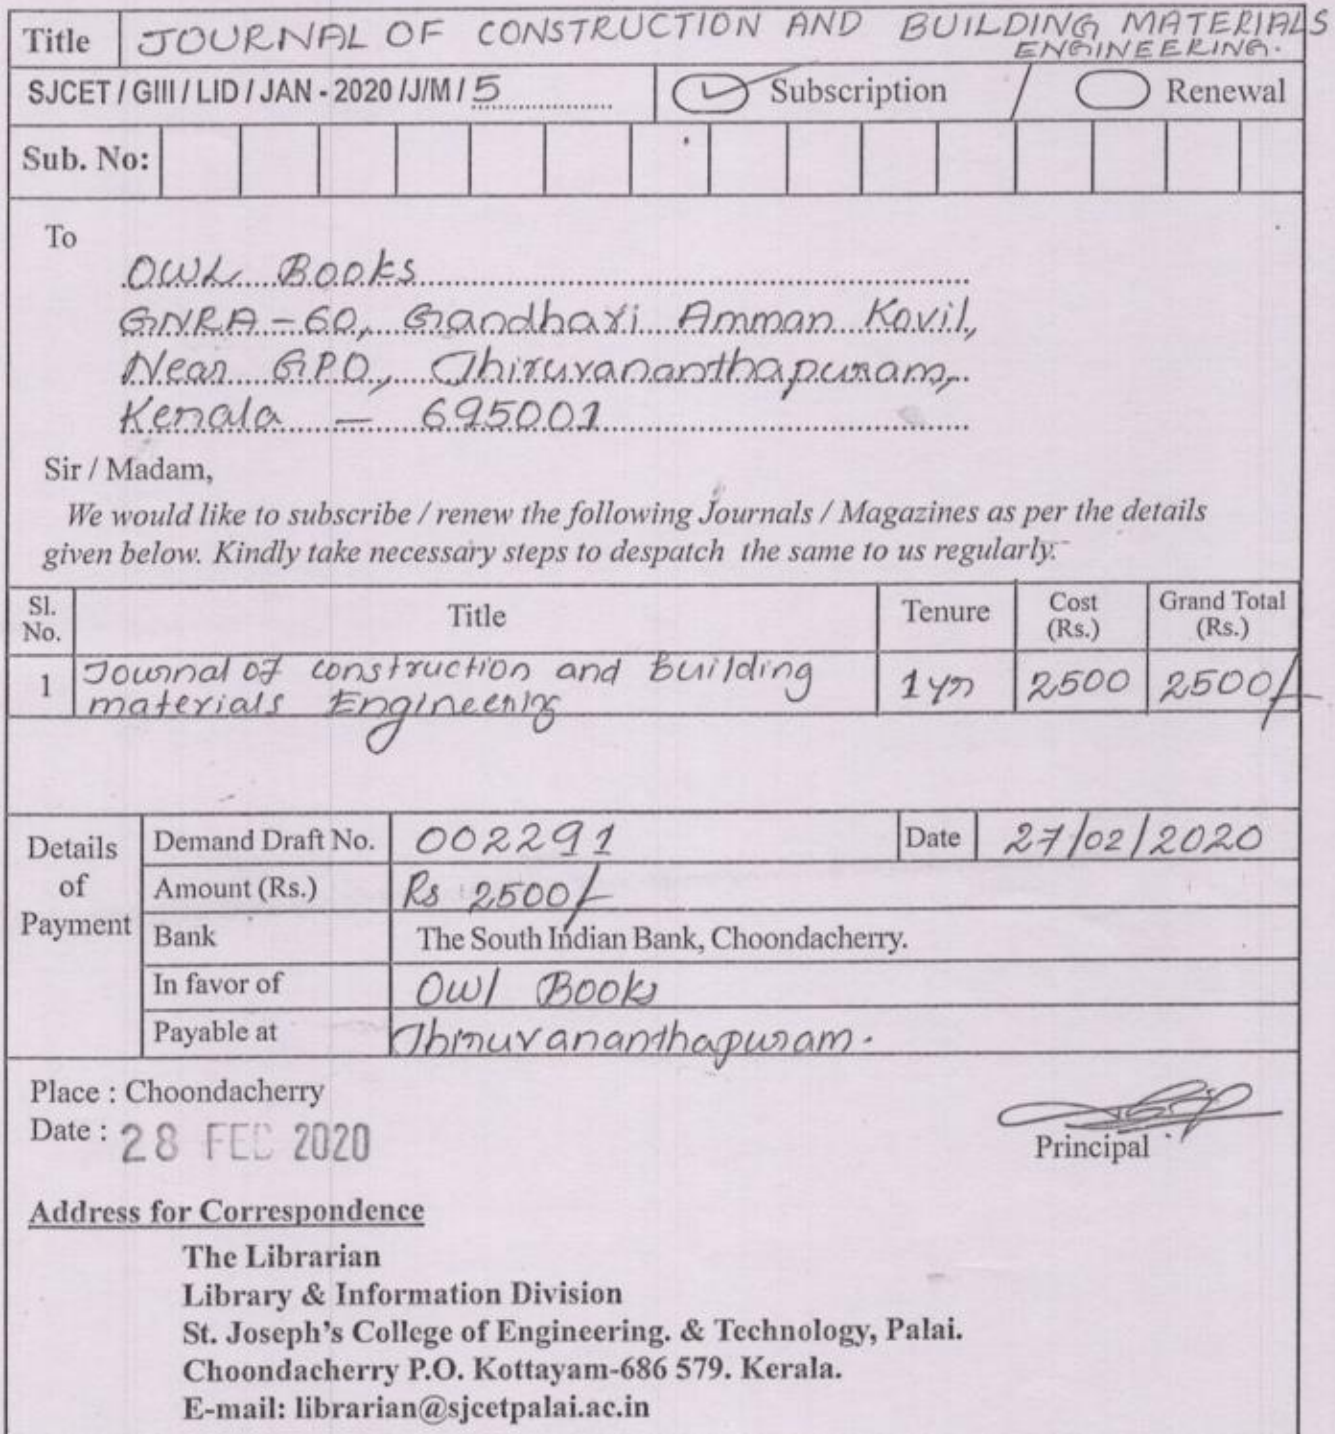 Title JOURNAL OF CONSTRUCTION AND BUILDING MATERIALS
ENGINEERING.
SJCET / GIII / LID / JAN - 2020 /J/M / 5 Subscription / Renewal
Sub. No:
To
OWL Books
GNRA - 60, Gandhari Amman Kovil,
Near G.P.O, Thiruvananthapuram,
Kerala - 695001
Sir / Madam,
We would like to subscribe / renew the following Journals / Magazines as per the details
given below. Kindly take necessary steps to despatch the same to us regularly.
Sl. No. Title Tenure Cost (Rs.) Grand Total (Rs.)
1 Journal of construction and Building 1 yr 2500 2500/-
materials Engineering
Details of Payment
Demand Draft No. 002291 Date 27/02/2020
Amount (Rs.) Rs 2500/-
Bank The South Indian Bank, Choondacherry.
In favor of Owl Books
Payable at Thiruvananthapuram.
Place : Choondacherry
Date : 28 FEB 2020
Principal
Address for Correspondence
The Librarian
Library & Information Division
St. Joseph's College of Engineering. & Technology, Palai.
Choondacherry P.O. Kottayam-686 579. Kerala.
E-mail: librarian@sjcetpalai.ac.in